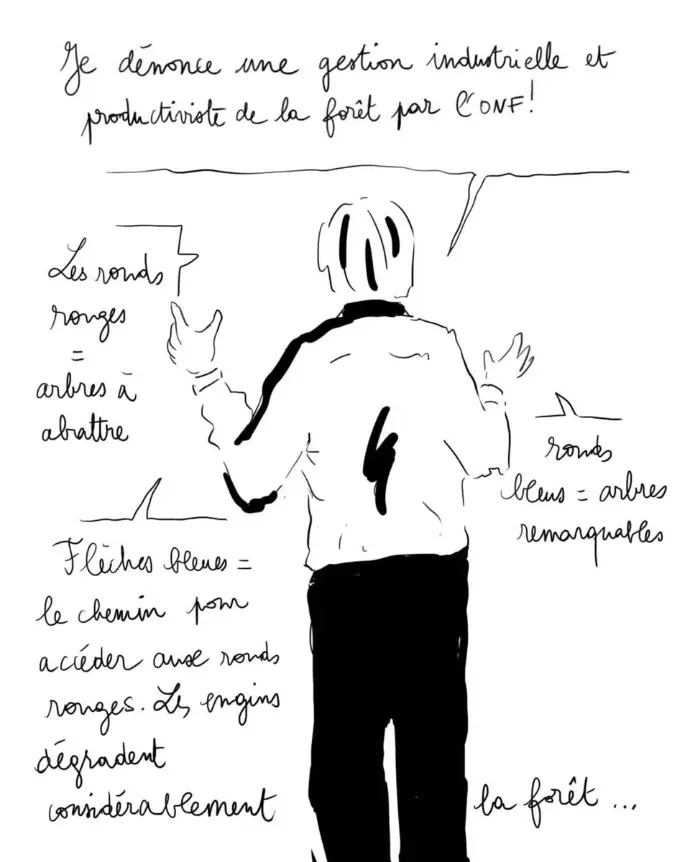 Je dénonce une gestion industrielle et
productiviste de la forêt par l'ONF!
Les ronds
rouges
=
arbres à
abattre
ronds
bleus = arbres
remarquables
Flèches bleues =
le chemin pour
accéder aux ronds
rouges. Les engins
dégradent
considérablement la forêt ...